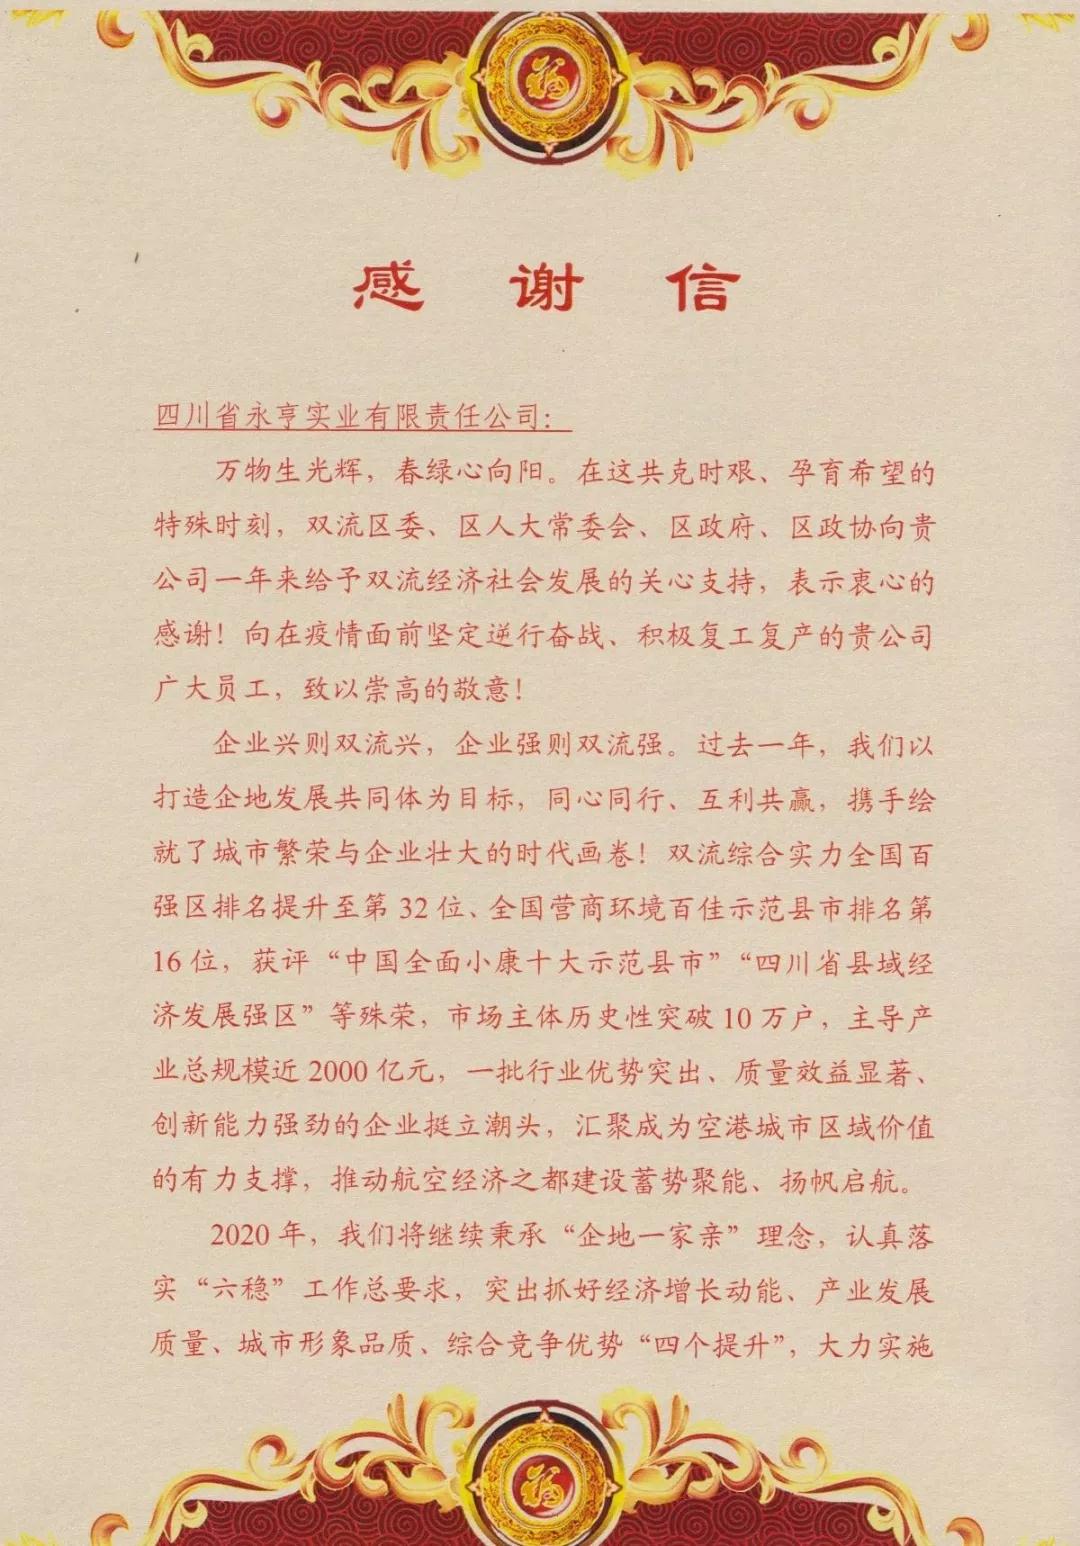 福
感谢信
四川省永亨实业有限责任公司：
万物生光辉，春绿心向阳。在这共克时艰、孕育希望的
特殊时刻，双流区委、区人大常委会、区政府、区政协向贵
公司一年来给予双流经济社会发展的关心支持，表示衷心的
感谢！向在疫情面前坚定逆行奋战、积极复工复产的贵公司
广大员工，致以崇高的敬意！
企业兴则双流兴，企业强则双流强。过去一年，我们以
打造企地发展共同体为目标，同心同行、互利共赢，携手绘
就了城市繁荣与企业壮大的时代画卷！双流综合实力全国百
强区排名提升至第 32 位、全国营商环境百佳示范县市排名第
16 位，获评“中国全面小康十大示范县市”“四川省县域经
济发展强区”等殊荣，市场主体历史性突破 10 万户，主导产
业总规模近 2000 亿元，一批行业优势突出、质量效益显著、
创新能力强劲的企业挺立潮头，汇聚成为空港城市区域价值
的有力支撑，推动航空经济之都建设蓄势聚能、扬帆启航。
2020 年，我们将继续秉承“企地一家亲”理念，认真落
实“六稳”工作总要求，突出抓好经济增长动能、产业发展
质量、城市形象品质、综合竞争优势“四个提升”，大力实施
福